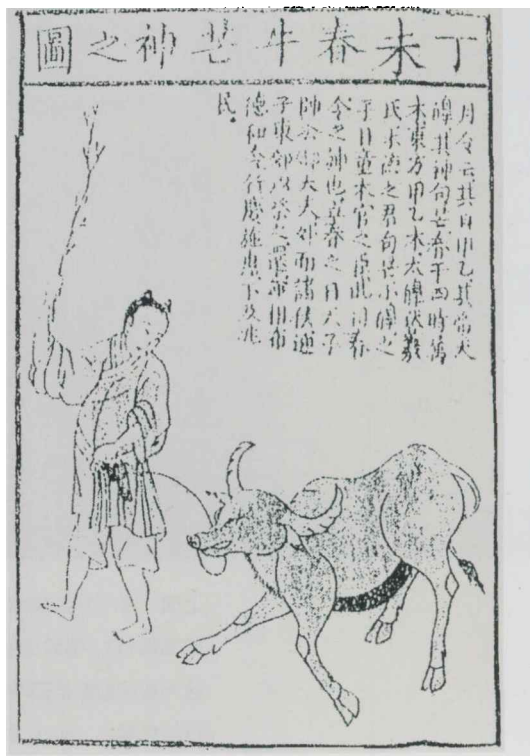 丁未春牛芒神之圖
月令云其日甲乙其帝大
皞其神句芒春于四時屬
木東方甲乙木太皞伏羲
氏木德之君句芒小皞之
子曰重木官之臣此司春
令之神也立春之日天子
帥公卿大夫而諸侯迎
于東郊以祭之還相布
德和令行慶施惠下及兆
民